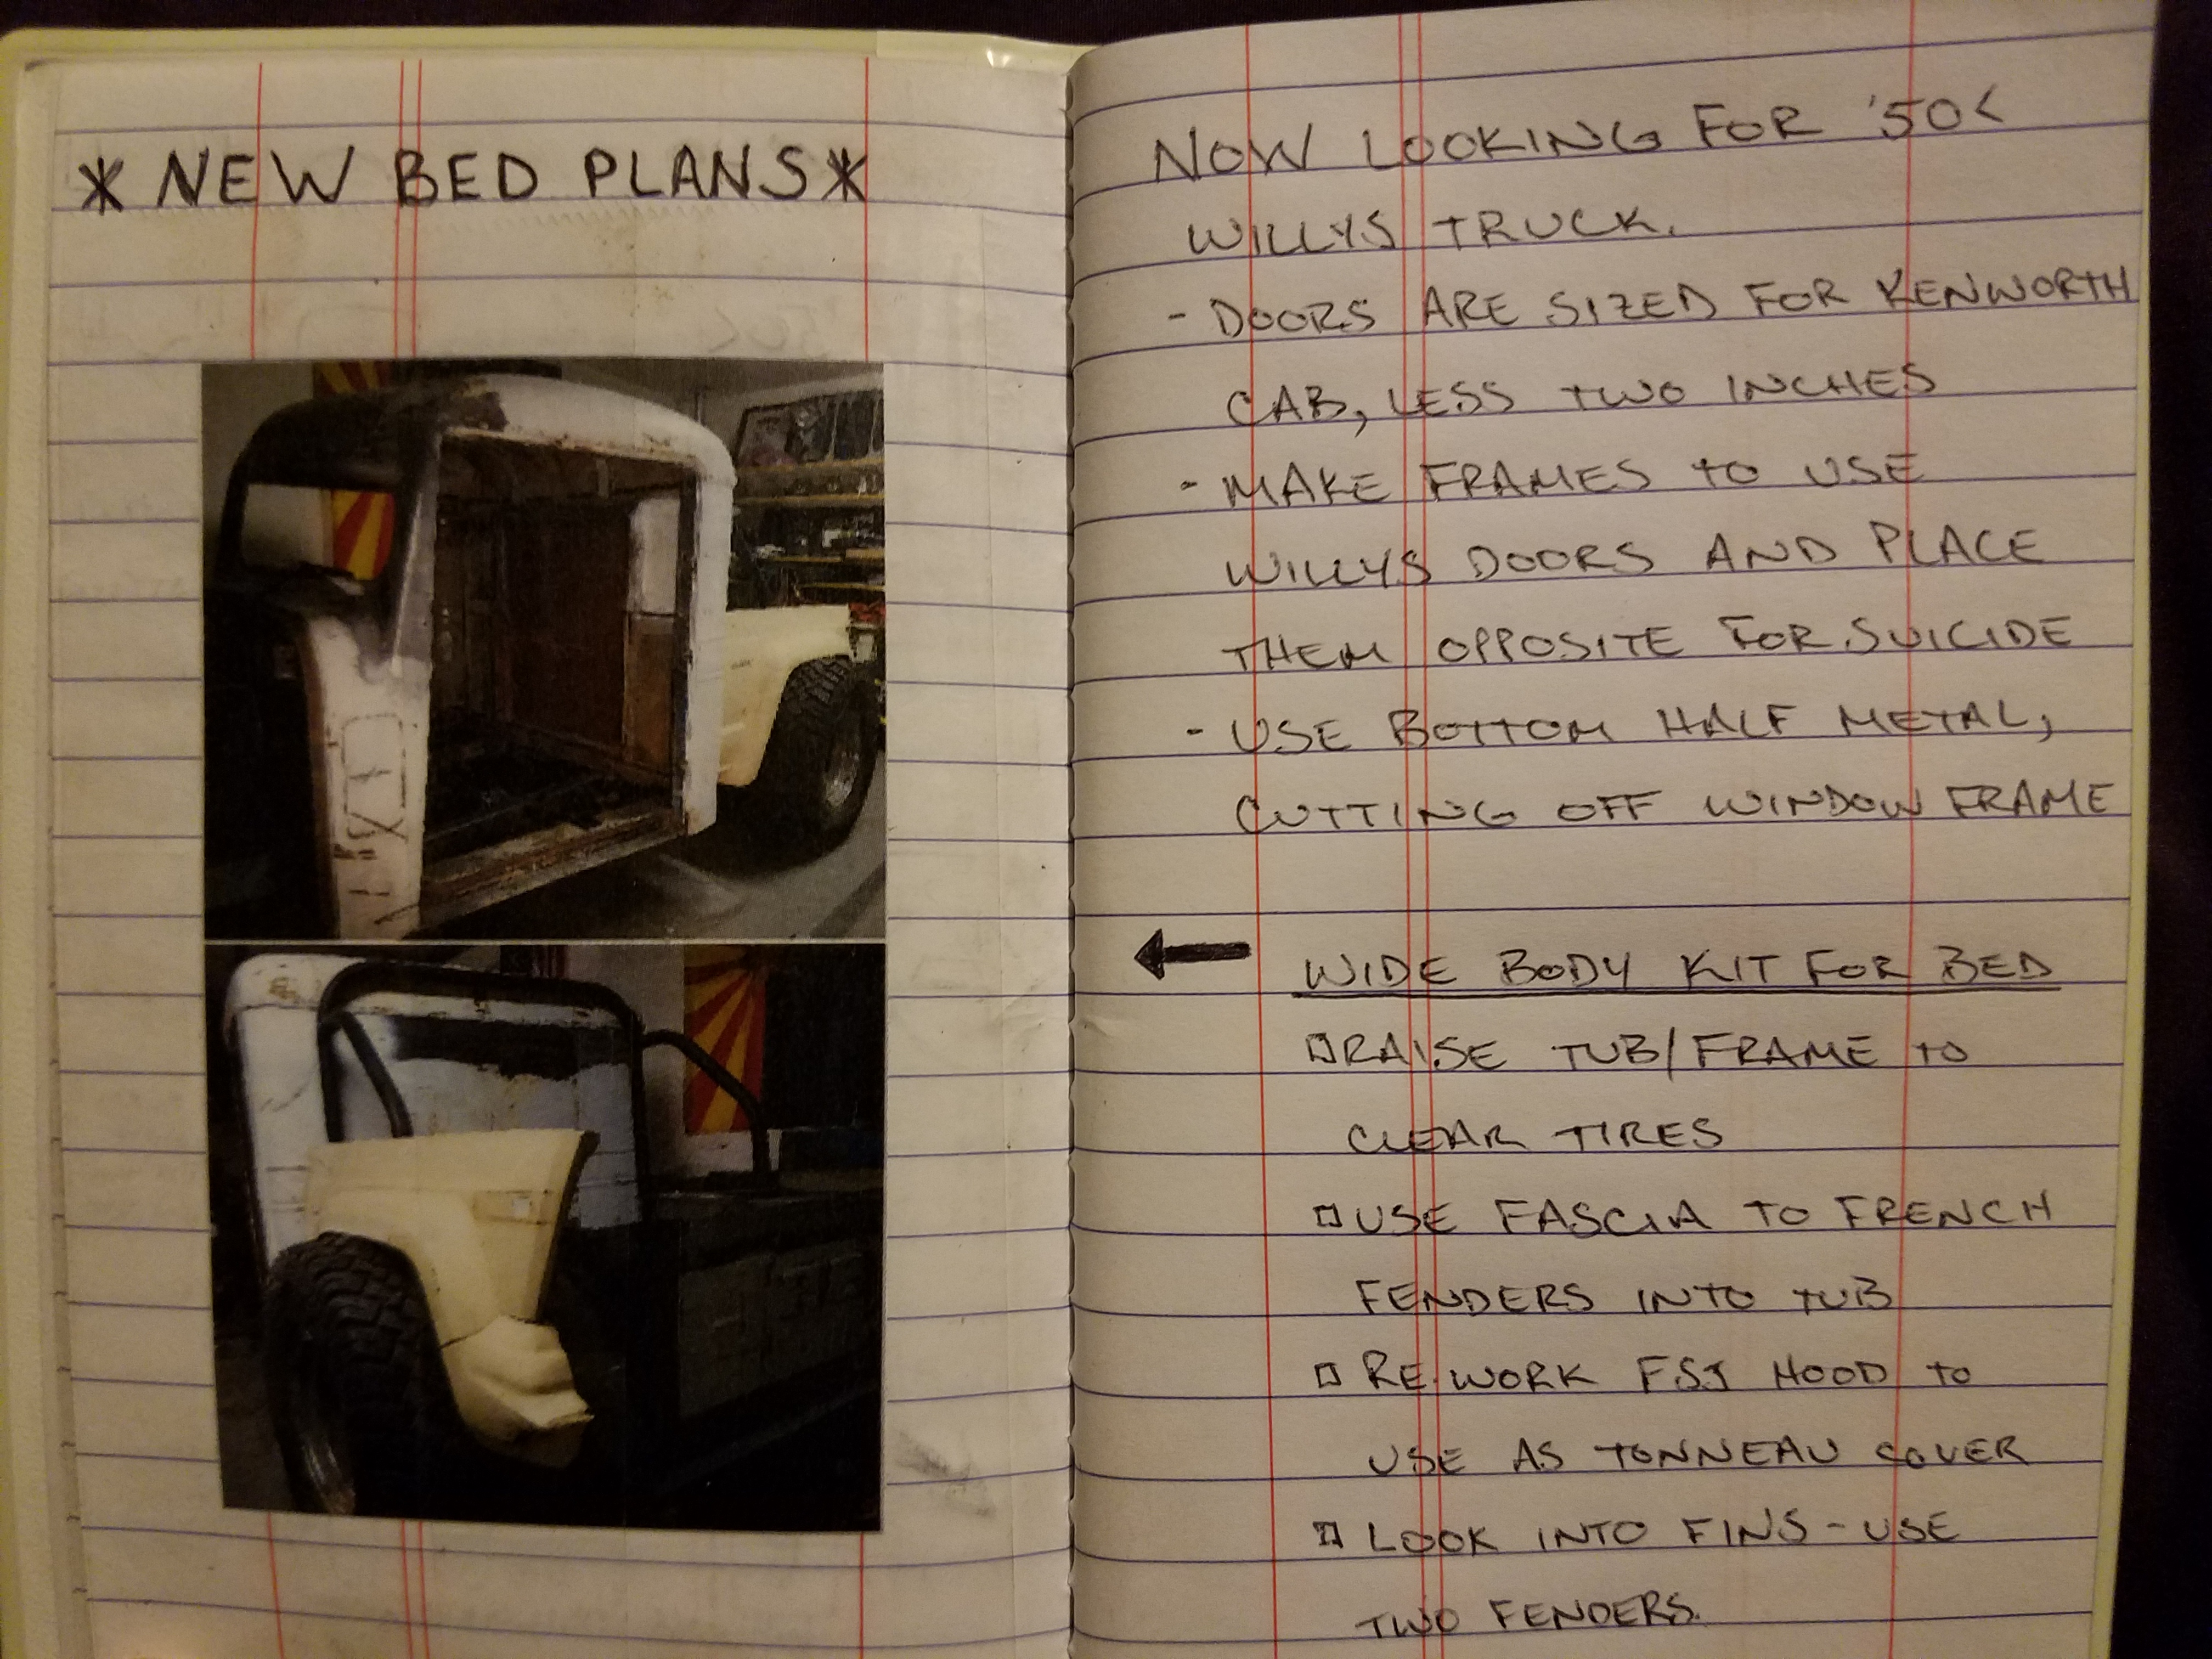 * NEW BED PLANS *
NOW LOOKING FOR '50<
WILLYS TRUCK.
- DOORS ARE SIZED FOR KENWORTH
CAB, LESS TWO INCHES
- MAKE FRAMES TO USE
WILLYS DOORS AND PLACE
THEM OPPOSITE FOR SUICIDE
- USE BOTTOM HALF METAL,
CUTTING OFF WINDOW FRAME
← WIDE BODY KIT FOR BED
□ RAISE TUB/FRAME TO
CLEAR TIRES
□ USE FASCIA TO FRENCH
FENDERS INTO TUB
□ RE-WORK FSJ HOOD TO
USE AS TONNEAU COVER
□ LOOK INTO FINS - USE
TWO FENDERS.